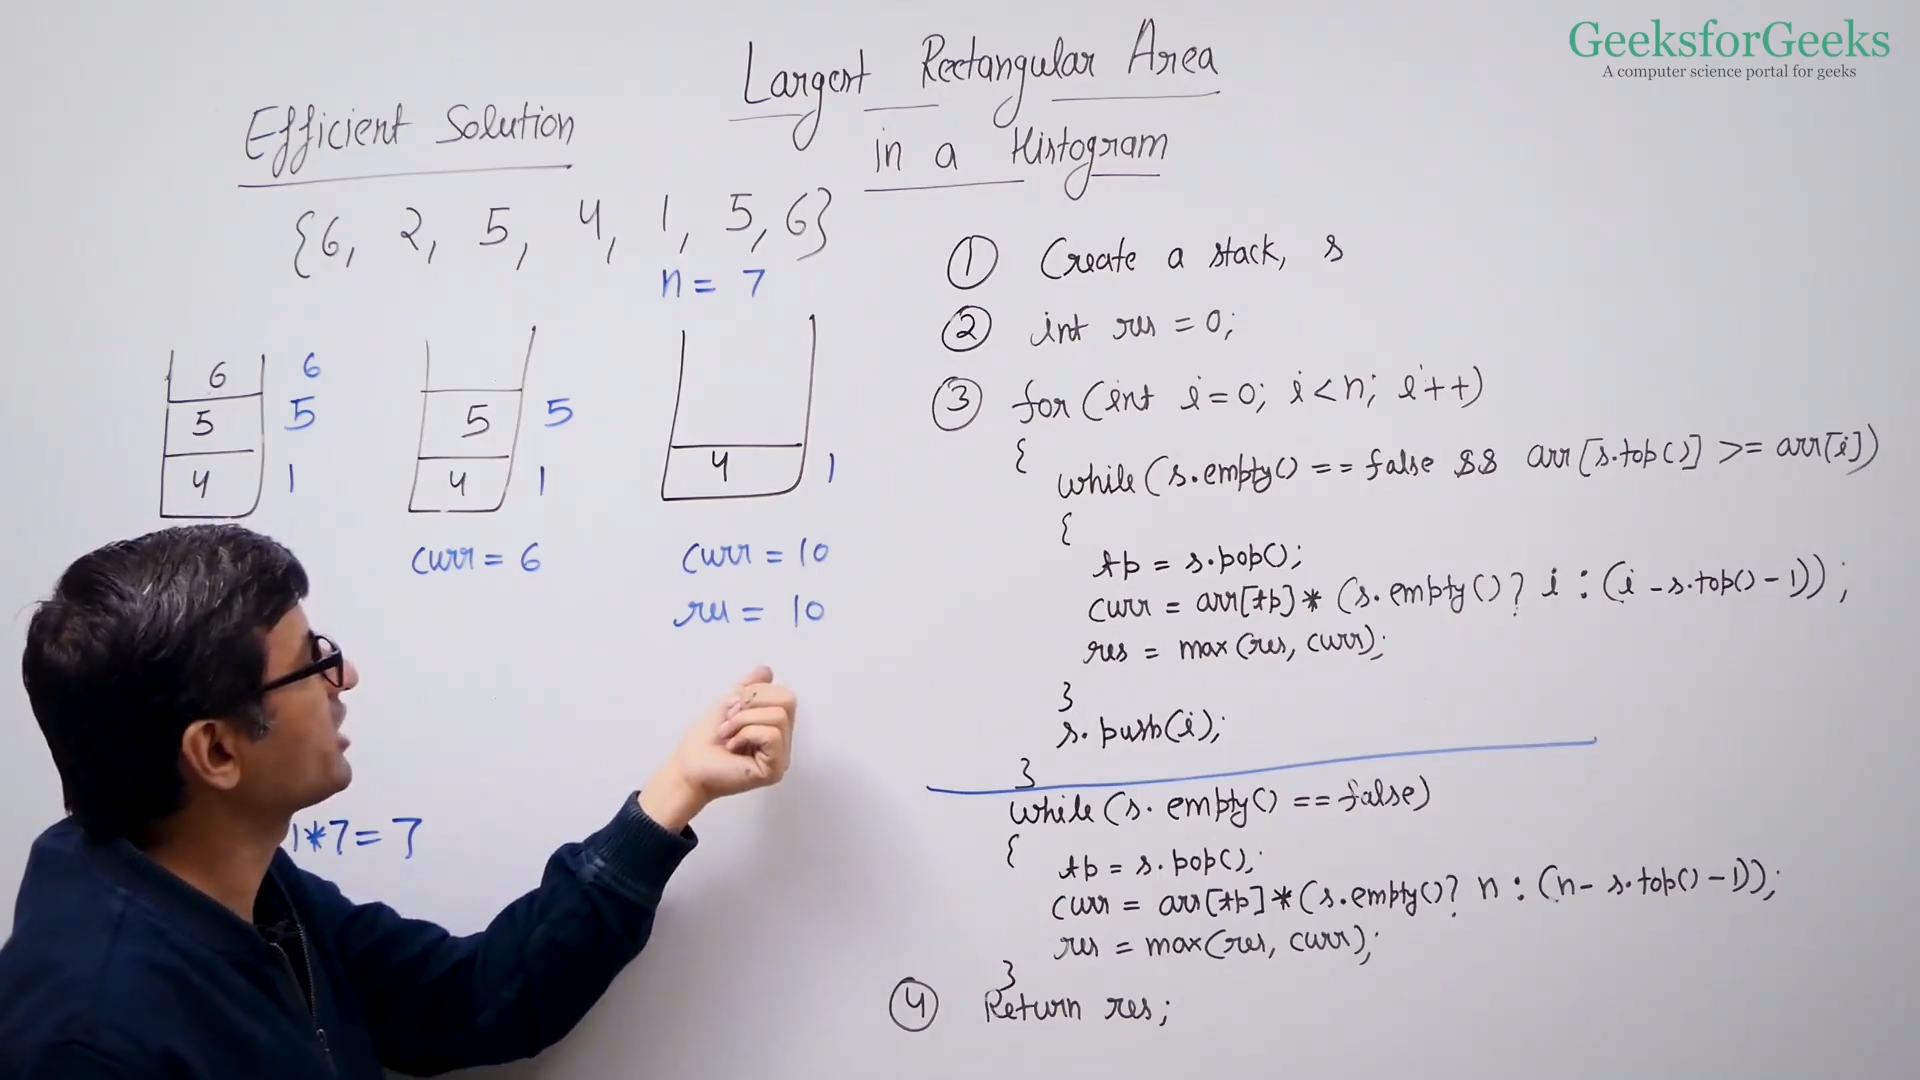 GeeksforGeeks
A computer science portal for geeks
Largest Rectangular Area
in a Histogram
Efficient Solution
{6, 2, 5, 4, 1, 5, 6}
n = 7
6 6
5 5
4 1
5 5
4 1
curr = 6
4 1
curr = 10
res = 10
1*7 = 7
① Create a stack, s
② int res = 0;
③ for (int i = 0; i < n; i++)
{
while (s.empty() == false && arr[s.top()] >= arr[i])
{
tp = s.pop();
curr = arr[tp] * (s.empty() ? i : (i - s.top() - 1));
res = max(res, curr);
}
s.push(i);
}
while (s.empty() == false)
{
tp = s.pop();
curr = arr[tp] * (s.empty() ? n : (n - s.top() - 1));
res = max(res, curr);
}
④ Return res;